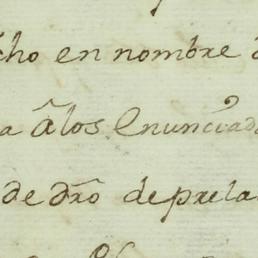 cho en nombre d
a âlos Enunciad
de dr̃o deprela